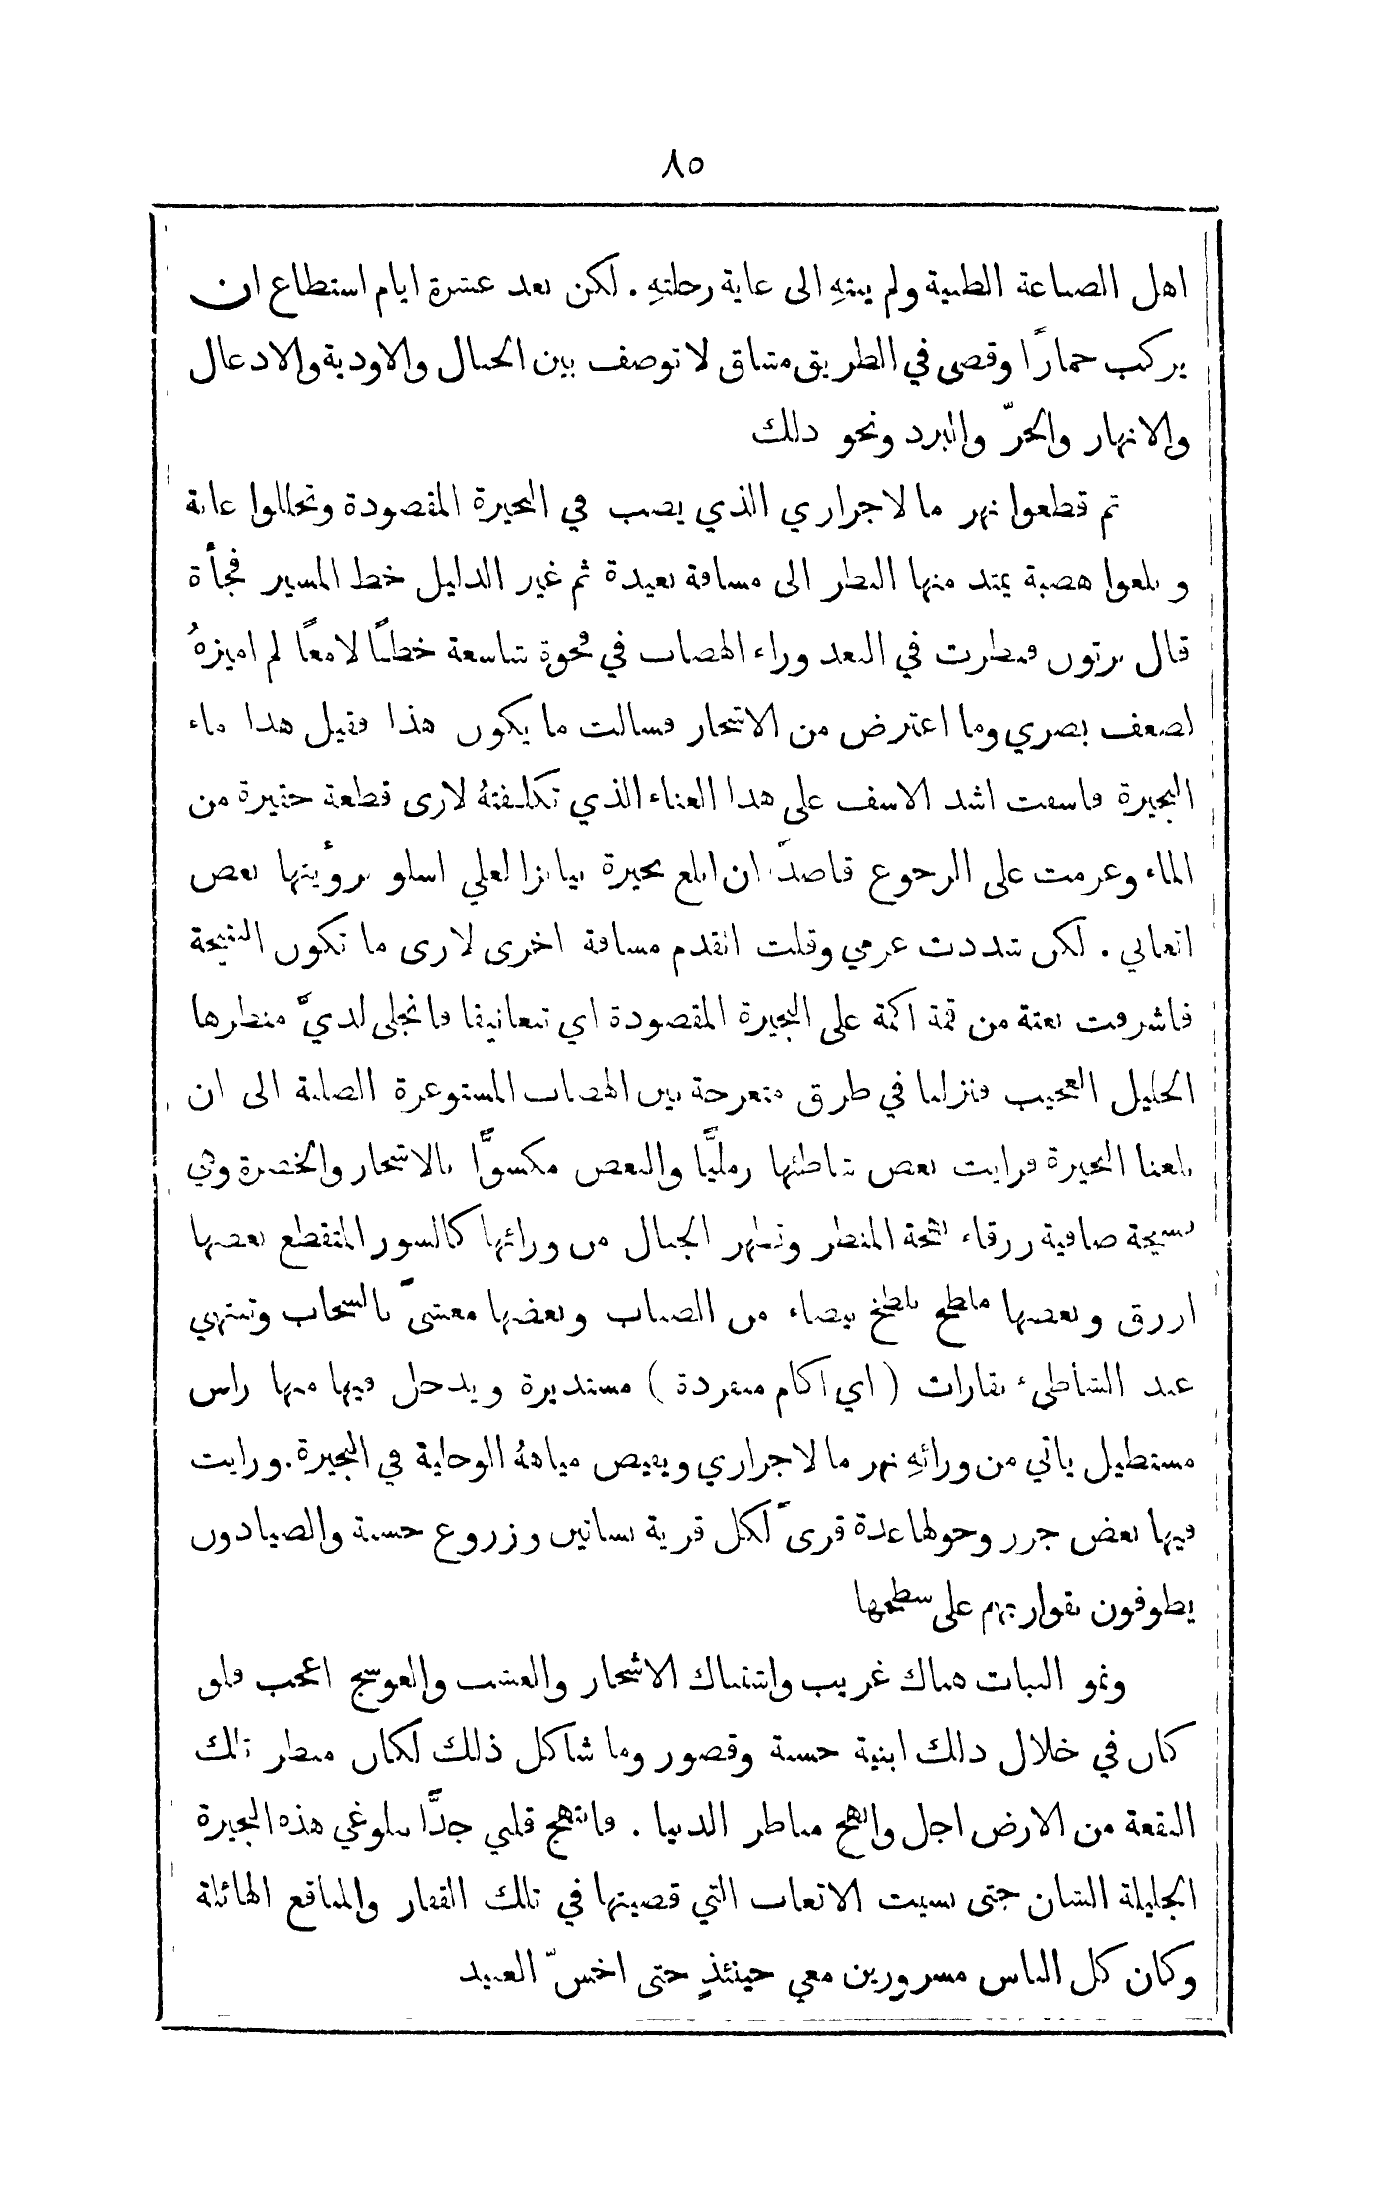 ٨٥
اهل الصناعة الطبية ولم ينتهِ الى غاية رحلتهِ . لكن بعد عشرة ايام استطاع ان
يركب حمارًا وقصى في الطريق مشاق لا توصف بين الجبال والاودية والادغال
والانهار والحرّ والبرد ونحو ذلك
ثم قطعوا نهر مالاجراري الذي يصب في البحيرة المقصودة وتخللوا غابة
وبلغوا هضبة يمتد منها النظر الى مسافة بعيدة ثم غير الدليل خط المسير فجأة
قال برتون فنظرت في البعد وراء الهضاب في فجوة شاسعة خطًّا لامعًا لم اميزهُ
لضعف بصري وما اعترض من الاشجار فسالت ما يكون هذا فقيل هذا ماء
البحيرة فاسفت اشد الاسف على هذا العناء الذي تكلفتهُ لارى قطعة حقيرة من
الماء وعزمت على الرجوع قاصدًا ان ابلغ بحيرة نيانزا لعلي اسلو برؤيتها بعض
اتعابي . لكن شددت عزمي وقلت اتقدم مسافة اخرى لارى ما تكون النتيجة
فاشرفت بغتة من قمة اكمة على البحيرة المقصودة اي تنغانيقا فانجلى لديَّ منظرها
الجليل العجيب فنزلنا في طرق متعرجة بين الهضاب المستوعرة الصلبة الى ان
بلغنا البحيرة فرايت بعض شاطئها رمليًّا والبعض مكسوًّا بالاشجار والخضرة وهي
فسيحة صافية زرقاء بهجة المنظر وتظهر الجبال من ورائها كالسور المتقطع بعضها
ازرق وبعضها ملطخ بلطخ بيضاء من الضباب وبعضها مغشىً بالسحاب وتنتهي
عند الشاطىء بقارات ( اي آكام منفردة ) مستديرة ويدخل فيها منها راس
مستطيل ياتي من ورائهِ نهر مالاجراري ويفيض مياههُ الوحلية في البحيرة. ورايت
فيها بعض جزر وحولها عدة قرىً لكل قرية بساتين وزروع حسنة والصيادون
يطوفون بقواربهم على سطحها
ونمو النبات هناك غريب واشتباك الاشجار والعشب والعوسج اعجب فلو
كان في خلال ذلك ابنية حسنة وقصور وما شاكل ذلك لكان منظر تلك
البقعة من الارض اجل وابهج مناظر الدنيا . فابتهج قلبي جدًّا ببلوغي هذه البحيرة
الجليلة الشان حتى نسيت الاتعاب التي قضيتها في تلك القفار والمناقع الهائلة
وكان كل الناس مسرورين معي حينئذٍ حتى اخسّ العبيد